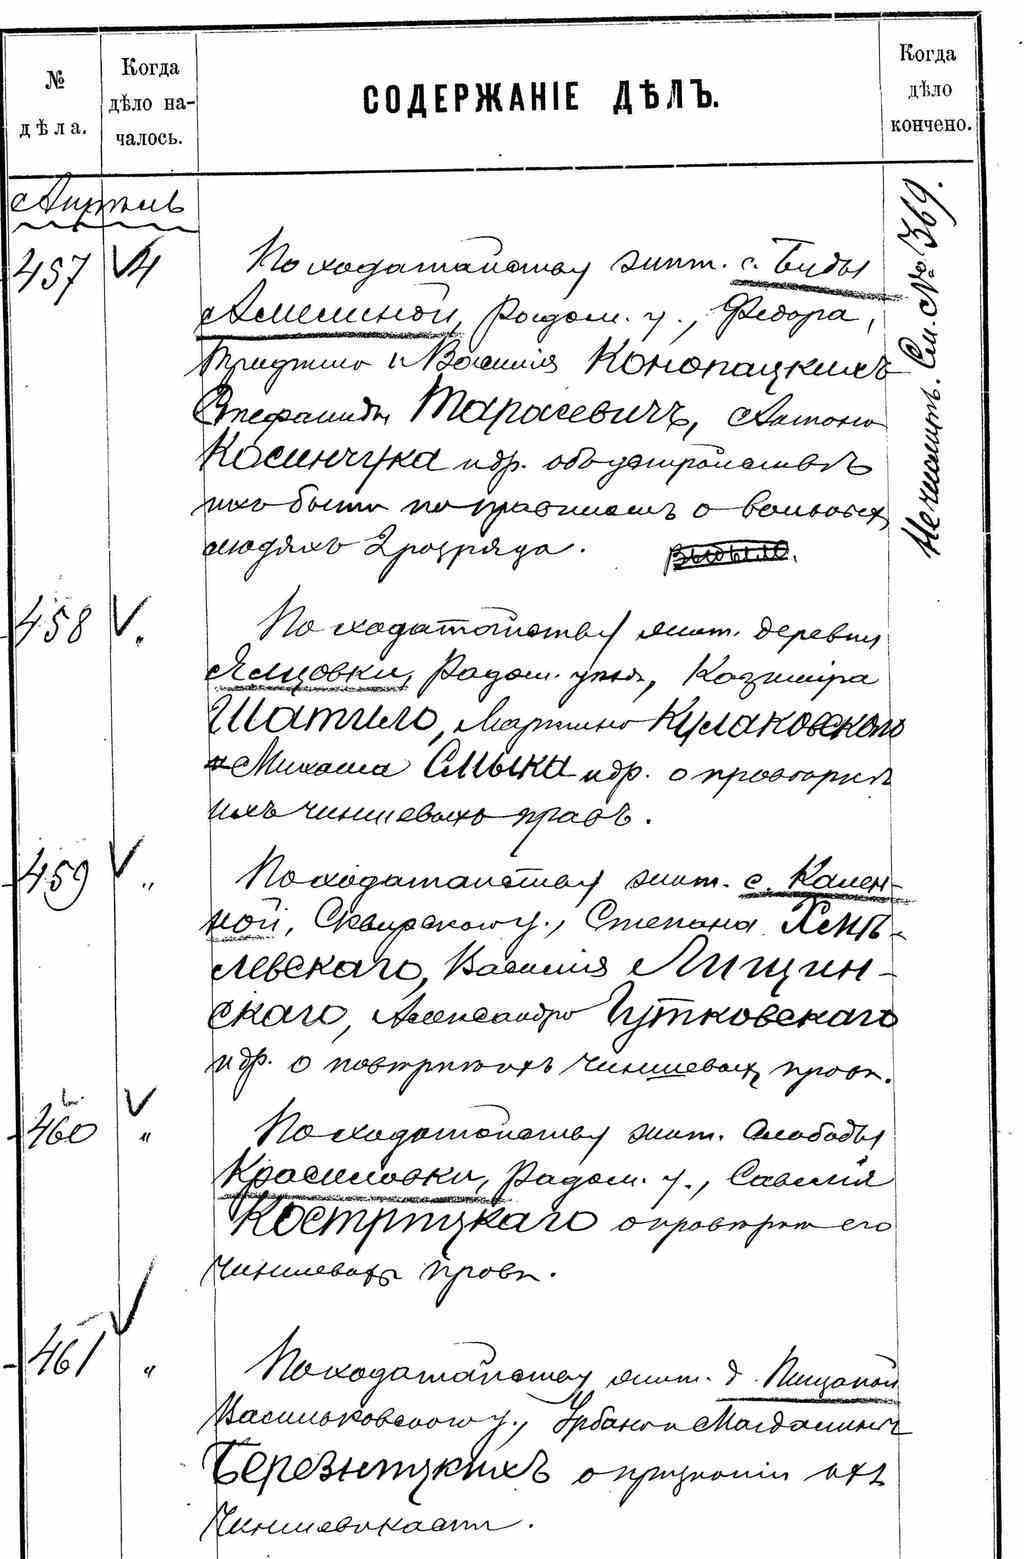 № дѣла.
Когда дѣло началось.
СОДЕРЖАНІЕ ДѢЛЪ.
Когда дѣло кончено.
Апрѣль
457 4 По ходатайству жит. с. Буды
Амелиной, Радом. у., Федора,
и Василія Конопацкихъ
Стефаниды Тарасевичъ, Антона
Косинчука и др. объ устройствѣ
ихъ быта по правиламъ о вольныхъ
людяхъ 2 разряда. Выдѣлъ.
Не чинш. См. № 369.
458 " По ходатайству жит. деревни
Ялцовки, Радом. уѣзда, Казиміра
Шатило, Мартина Кулаковскаго
Михаила Смыка и др. о провѣркѣ
ихъ чиншевыхъ правъ.
459 " По ходатайству жит. с. Кален-
ной, Сквирскаго у., Степана Хмѣ-
левскаго, Василія Лищин-
скаго, Александра Гутковскаго
и др. о чиншевыхъ правъ.
460 " По ходатайству жит. Слободы
Красиловки, Радом. у., Савелія
Кострицкаго о провѣркѣ его
чиншевыхъ правъ.
461 " По ходатайству жит. д. Пищаной
Васильковскаго у., Урбана и Магдалины
Березницкихъ о признаніи ихъ